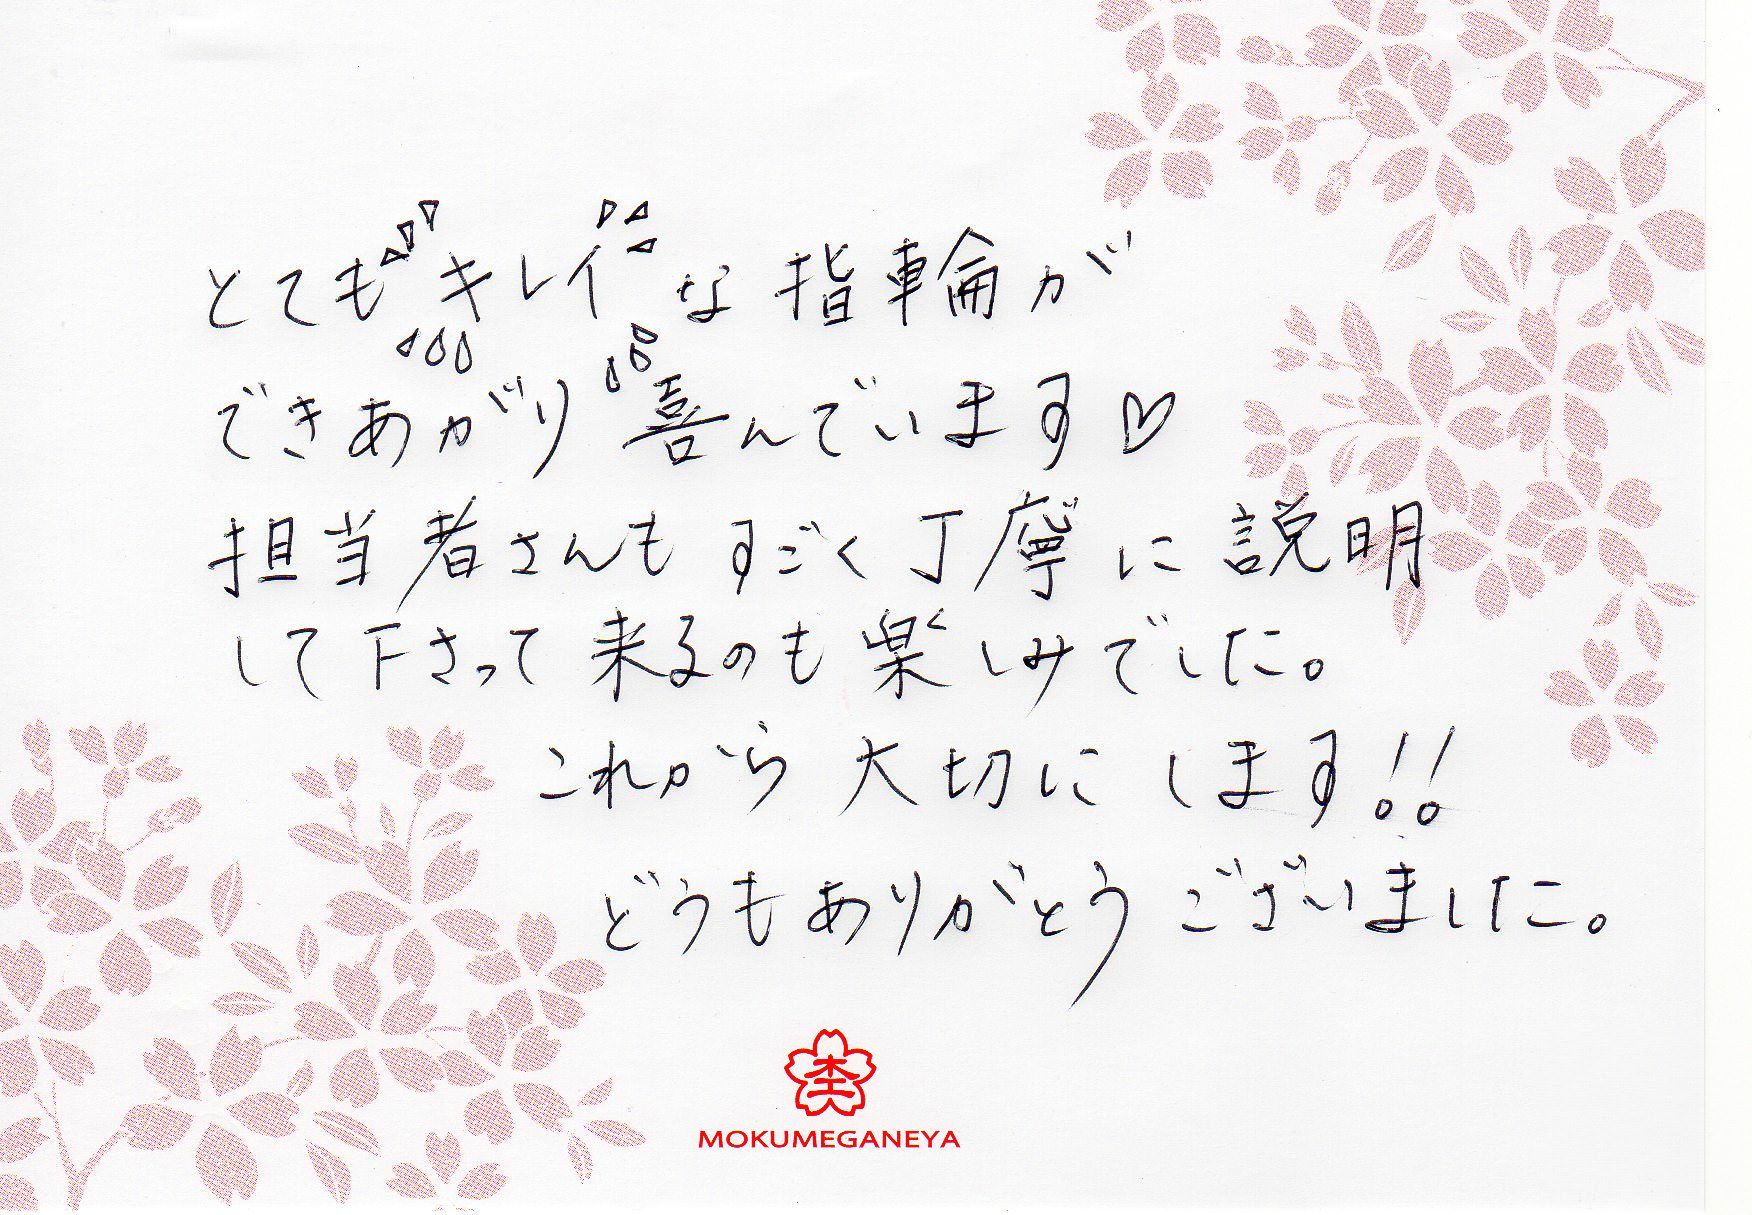 とてもキレイな指輪が
できあがり喜んでいます♡
担当者さんもすごく丁寧に説明
して下さって来るのも楽しみでした。
これから大切にします!!
どうもありがとうございました。
MOKUMEGANEYA